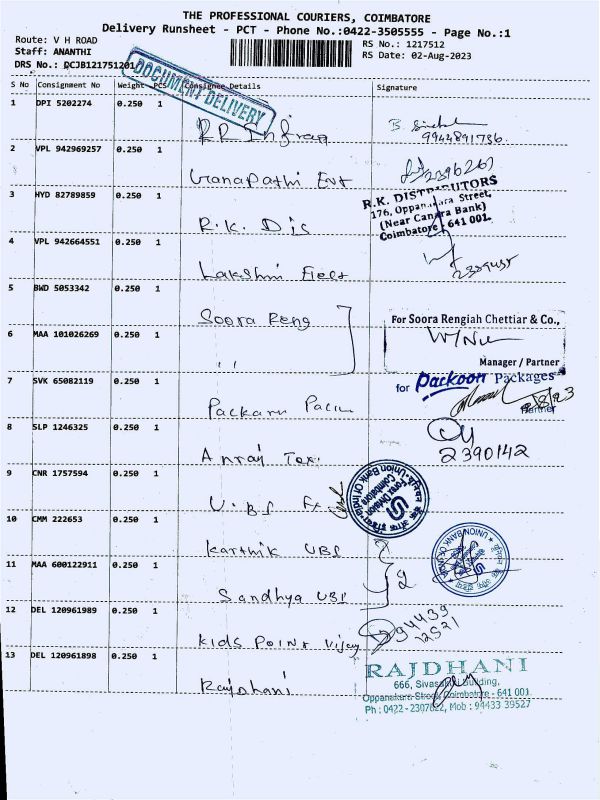 THE PROFESSIONAL COURIERS, COIMBATORE
Delivery Runsheet - PCT - Phone No.:0422-3505555 - Page No.:1
Route: V H ROAD
RS No.: 1217512
Staff: ANANTHI
RS Date: 02-Aug-2023
DRS No.: DCJB121751201
DOCUMENT DELIVERY
S No Consignment No Weight PCS Consignee Details Signature
1 DPI 5202274 0.250 1
RR Infran
9944891736
2 VPL 942969257 0.250 1
Ganapathi Ent
2396267
3 HYD 82789859 0.250 1
R.K. Dis
R.K. DISTRIBUTORS
176, Oppanakara Street,
(Near Canara Bank)
Coimbatore - 641 001.
4 VPL 942664551 0.250 1
Lakshmi Elect
5 BWD 5053342 0.250 1
Soora Reng
For Soora Rengiah Chettiar & Co.,
Manager / Partner
6 MAA 101026269 0.250 1
,,
7 SVK 65082119 0.250 1
for Packoon Packages
Partner
2/8/23
8 SLP 1246325 0.250 1
2390142
9 CNR 1757594 0.250 1
U.B.I
Union Bank Of India
Coimbatore
10 CMM 222653 0.250 1
Karthik UBI
UNION BANK OF INDIA
11 MAA 600122911 0.250 1
Sandhya UBI
2
12 DEL 120961989 0.250 1
Kids Point Vijay
94439
12521
13 DEL 120961898 0.250 1
Rajdhani
RAJDHANI
666, Sivasakthi Building,
Oppanakara Street, Coimbatore - 641 001
Ph : 0422 - 2307822, Mob : 94433 39527